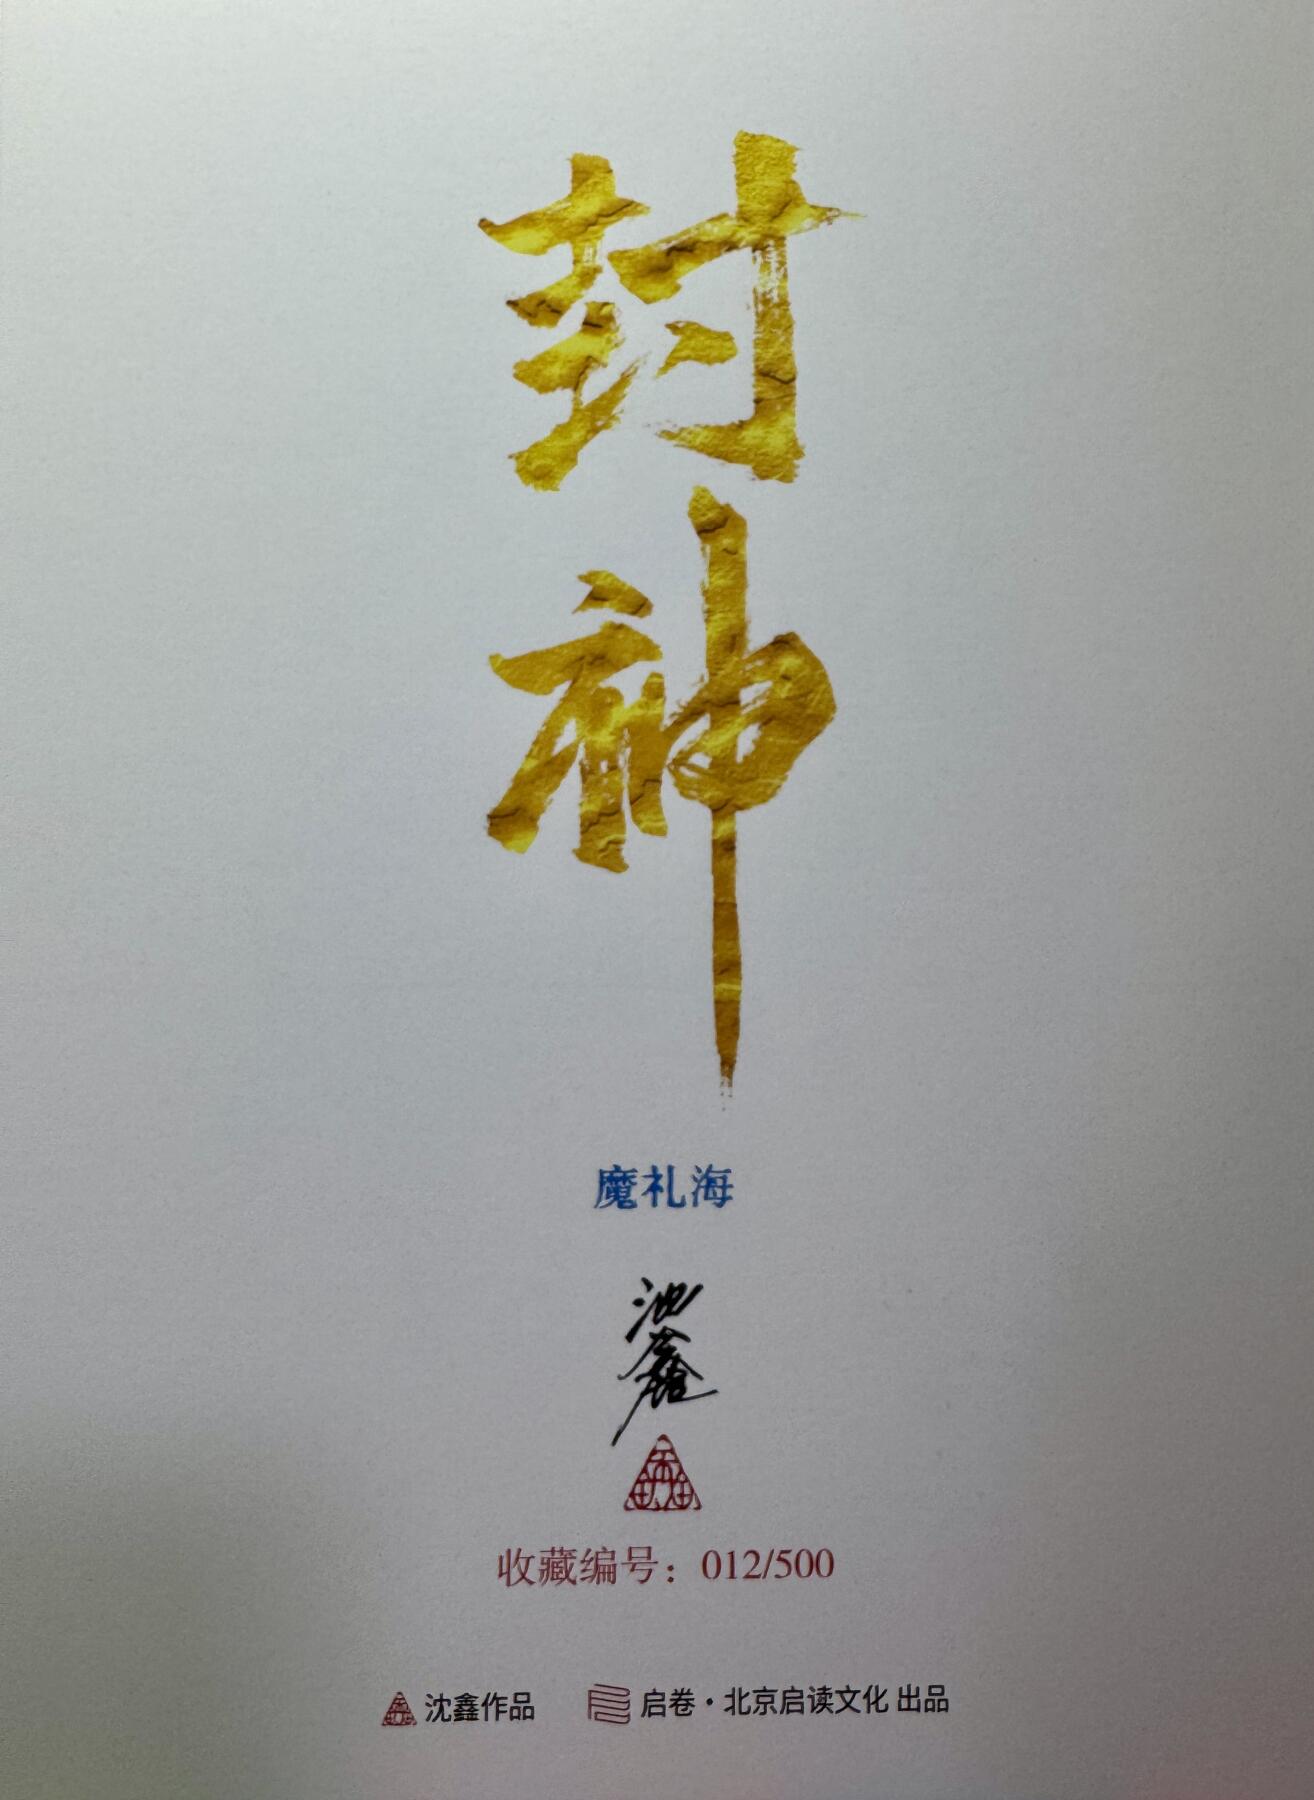 封神
魔礼海
沈鑫
收藏编号：012/500
沈鑫作品
启卷·北京启读文化 出品